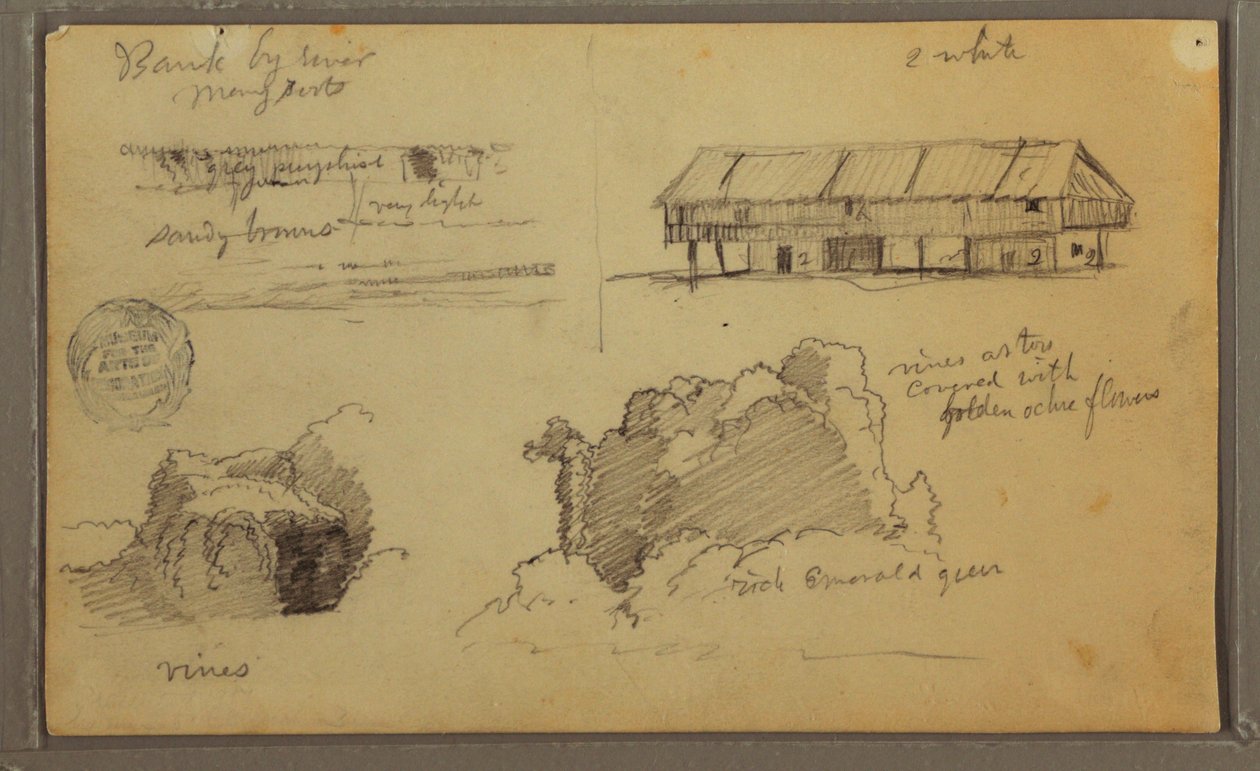 Bank by river
many sorts
grey purplish
very light
sandy browns
2 white
2
2
2
MUSEUM
FOR THE
ARTS OF
DECORATION
vines as tors
covered with
golden ochre flowers
rich Emerald green
vines